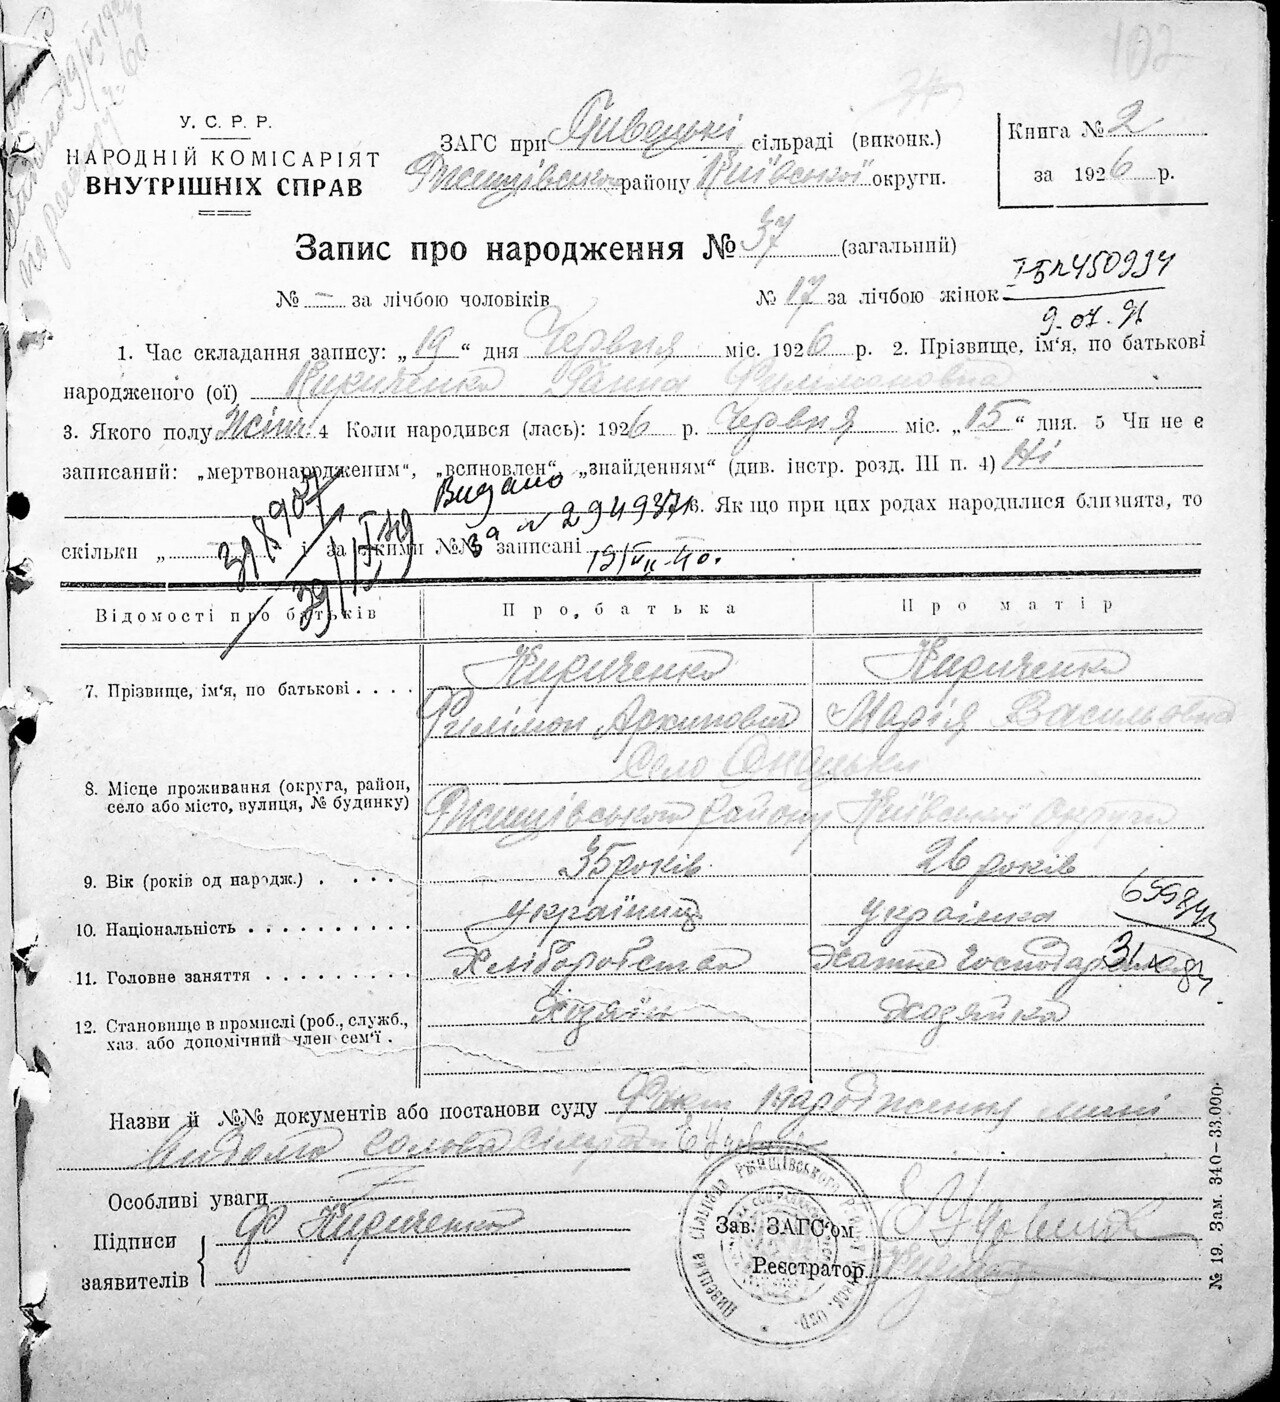 102
У. С. Р. Р.
НАРОДНІЙ КОМІСАРІЯТ
ВНУТРІШНІХ СПРАВ
ЗАГС при Пивецькі сільраді (виконк.)
Ржищівського району Київської округи.
Книга № 2
за 1926 р.
Запис про народження № 37 (загальний)
№ – за лічбою чоловіків № 17 за лічбою жінок
9.07.91
1. Час складання запису: „19“ дня Червня міс. 1926 р. 2. Прізвище, ім'я, по батькові
народженого (ої) Кириченко Ганна Филімоновна
3. Якого полу Жіноч. 4 Коли народився (лась): 1926 р. Червня міс. „15“ дня. 5 Чи не є
записаний: „мертвонародженим“, „всиновлен“, „знайденням“ (див. інстр. розд. III п. 4) Ні
Видано
№ 294937 6. Як що при цих родах народилися близнята, то
скільки „ і за якими №№ записані
Відомості про батьків
Про батька
Про матір
7. Прізвище, ім'я, по батькові Кириченко Кириченко
Филімон Архипович Марія Васильовна
8. Місце проживання (округа, район,
село або місто, вулиця, № будинку)
Село
Ржищівського району Київської округи
9. Вік (років од нарэдж.) 35 років 26 років
10. Національність українець українка
11. Головне заняття Хліборобство Хатне Господарство
12. Становище в промислі (роб., служб.,
хаз. або допомічний член сем'ї.
Хазяїн Хозяйка
Назви й №№ документів або постанови суду Факт народження мині
відомо Голова Сільради
Особливі уваги
Підписи
заявителів
Ф Кириченко
Зав. ЗАГС'ом
Реєстратор
№ 19. Зам. 340–33.000.